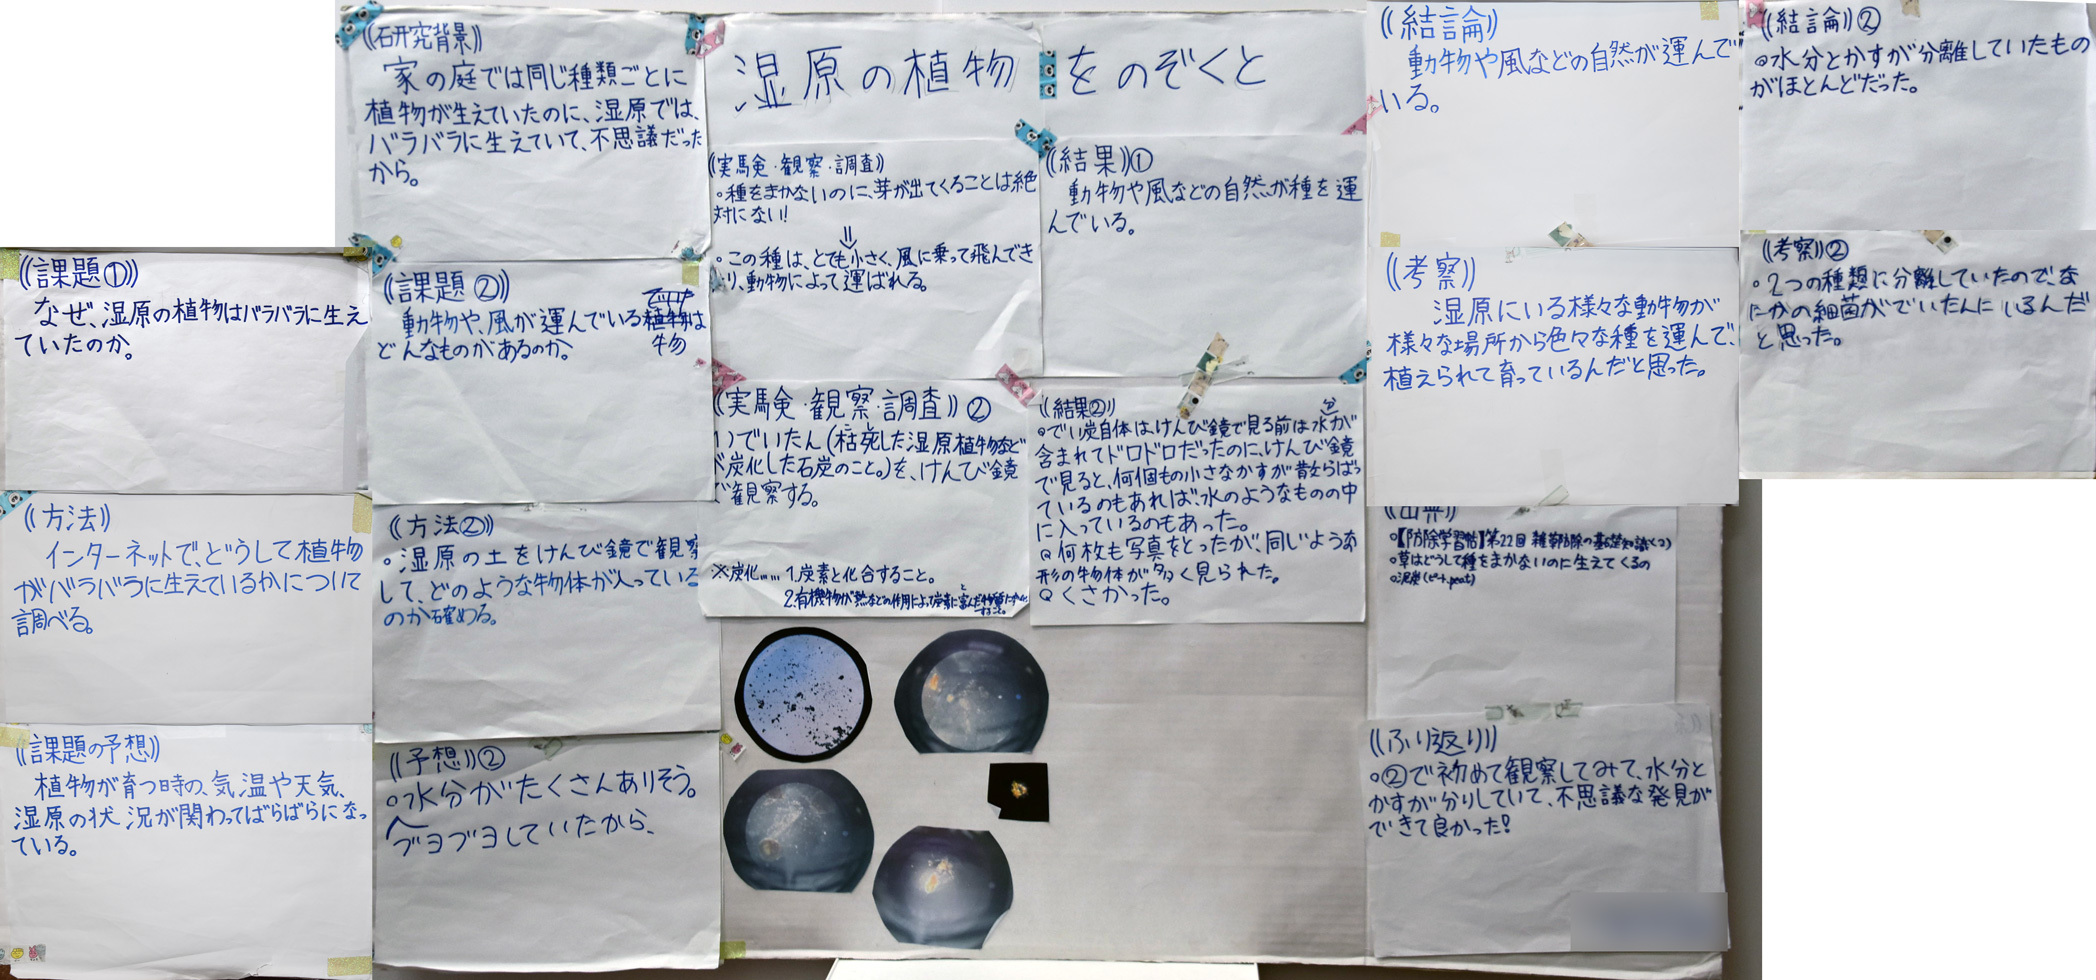 湿原の植物をのぞくと
((研究背景))
家の庭では同じ種類ごとに
植物が生えていたのに、湿原では、
バラバラに生えていて、不思議だった
から。
((課題①))
なぜ、湿原の植物はバラバラに生え
ていたのか。
((方法))
インターネットで、どうして植物
がバラバラに生えているかについて
調べる。
((課題の予想))
植物が育つ時の、気温や天気、
湿原の状況が関わってばらばらになっ
ている。
((実験・観察・調査))
○種をまかないのに、芽が出てくることは絶
対にない!
⇓
○この種は、とても小さく、風に乗って飛んでき
り、動物によって運ばれる。
((結果))①
動物や風などの自然が種を運
んでいる。
((結論))
動物や風などの自然が運んで
いる。
((考察))
湿原にいる様々な動物が
様々な場所から色々な種を運んで、
植えられて育っているんだと思った。
((課題②))
動物や、風が運んでいる植物は
どんなものがあるのか。
物
((方法②))
○湿原の土をけんび鏡で観察
して、どのような物体が入っている
のか確める。
((予想))②
○水分がたくさんありそう。
ブヨブヨしていたから、
((実験・観察・調査))②
1)でいたん(枯死した湿原植物など
が炭化した石炭のこと。)を、けんび鏡
で観察する。
※炭化……1.炭素と化合すること。
2.有機物が熱などの作用によって炭素に富んだ物質に
すること。
((結果②))
○でい炭自体は、けんび鏡で見る前は水が
含まれてドロドロだったのに、けんび鏡
で見ると、何個もの小さなかすが
ているのもあれば、水のようなものの中
に入っているのもあった。
○何枚も写真をとったが、同じような
形の物体が多く見られた。
○くさかった。
((結論))②
○水分とかすが分離していたもの
がほとんどだった。
((考察))②
○2つの種類に分離していたので、な
にかの細菌がでいたんにいるんだ
と思った。
○【防除学習帖】第22回 雑草防除の基礎知識(2)
○草はどうして種をまかないのに生えてくるの
○泥炭(ピート、peat)
((ふり返り))
○②で初めて観察してみて、水分と
かすが分りしていて、不思議な発見が
できて良かった!